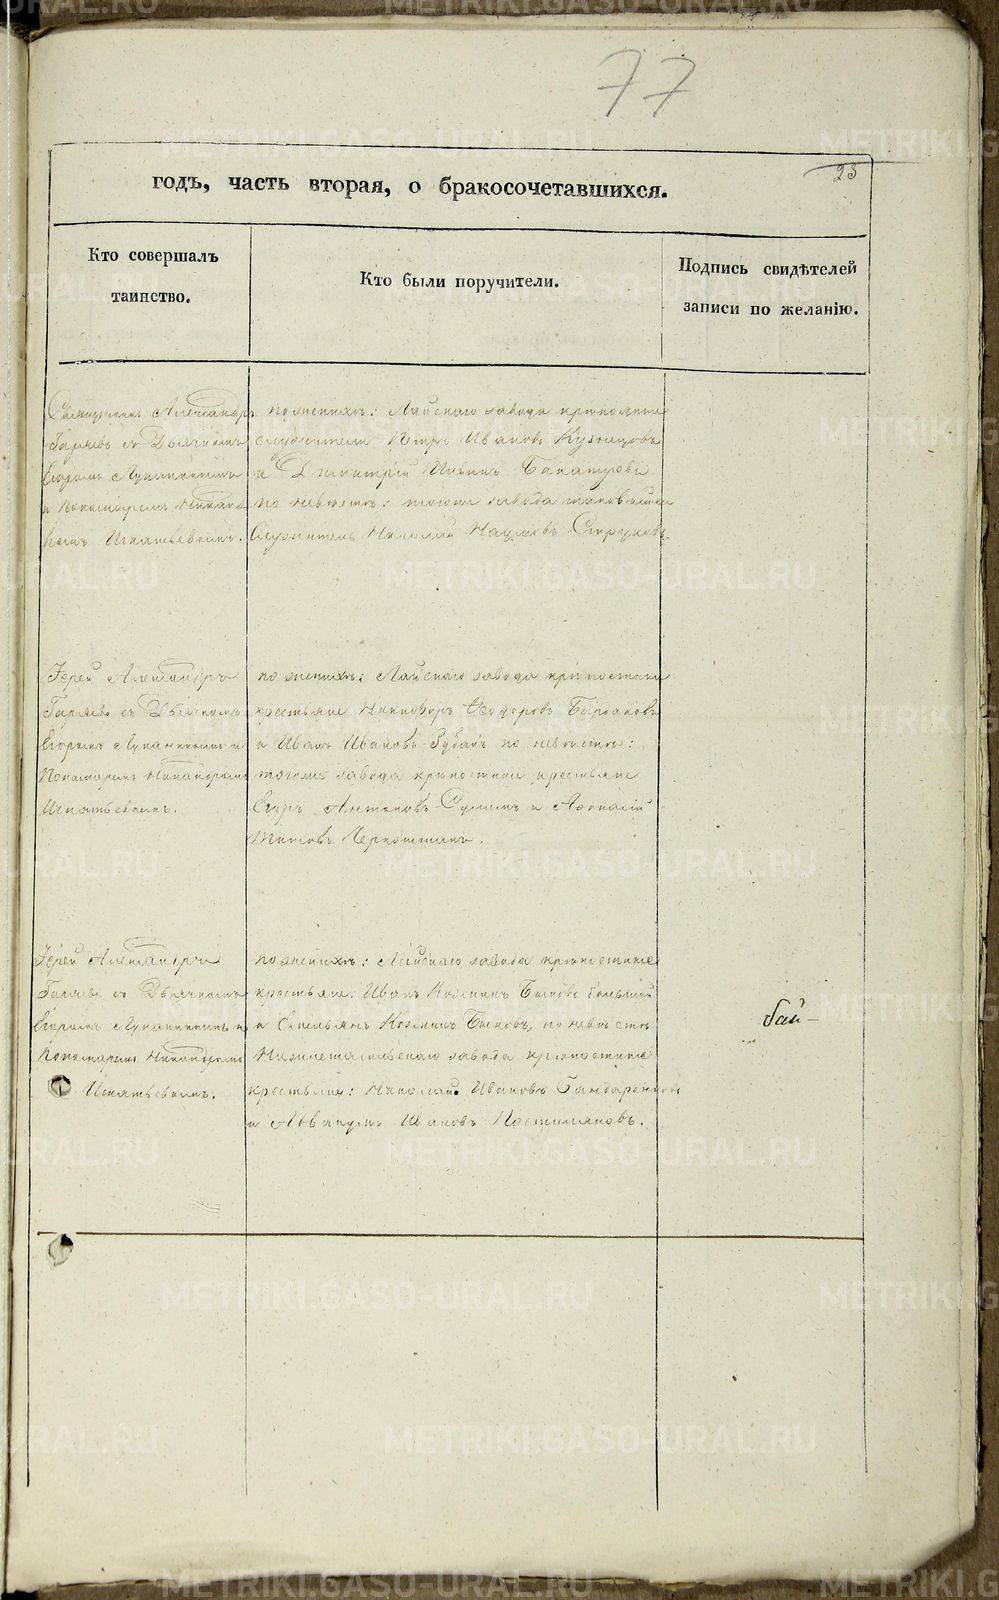 77
23
годъ, часть вторая, о бракосочетавшихся.
Кто совершалъ
таинство.
Кто были поручители.
Подпись свидѣтелей
записи по желанію.
Священникъ Александръ
Гаряевъ съ Дьячкомъ
Егоромъ
и Пономаремъ Никано
ромъ Игнатьевымъ.
по женихѣ: Лайскаго завода крѣпостные
служители Петръ Ивановъ Кузнецовъ
и Димитрій
по невѣстѣ: тогоже завода таковыйже
Служитель Николай Наумовъ
Іерей Александръ
Гаряевъ съ Дьячкомъ
Егоромъ и
Пономаремъ Никаноромъ
Игнатьевымъ.
по женихѣ: Лайскаго завода крѣпостные
крестьяне Никифоръ Ѳедоровъ
и Иванъ Ивановъ по невѣстѣ:
тогоже завода крѣпостные крестьяне
Егоръ Антоновъ и Афанасій
Титовъ
Іерей Александръ
Гаряевъ съ Дьячкомъ
Егоромъ и
Пономаремъ Никаноромъ
Игнатьевымъ.
по женихѣ: Лайскаго завода крѣпостные
крестьяне: Иванъ Козминъ Быковъ большой
и Емельянъ Козминъ Быковъ, по невѣстѣ
Нижнетагильскаго завода крѣпостные
крестьяне: Николай Ивановъ
и Аввакумъ Ивановъ
METRIKI.GASO-URAL.RU